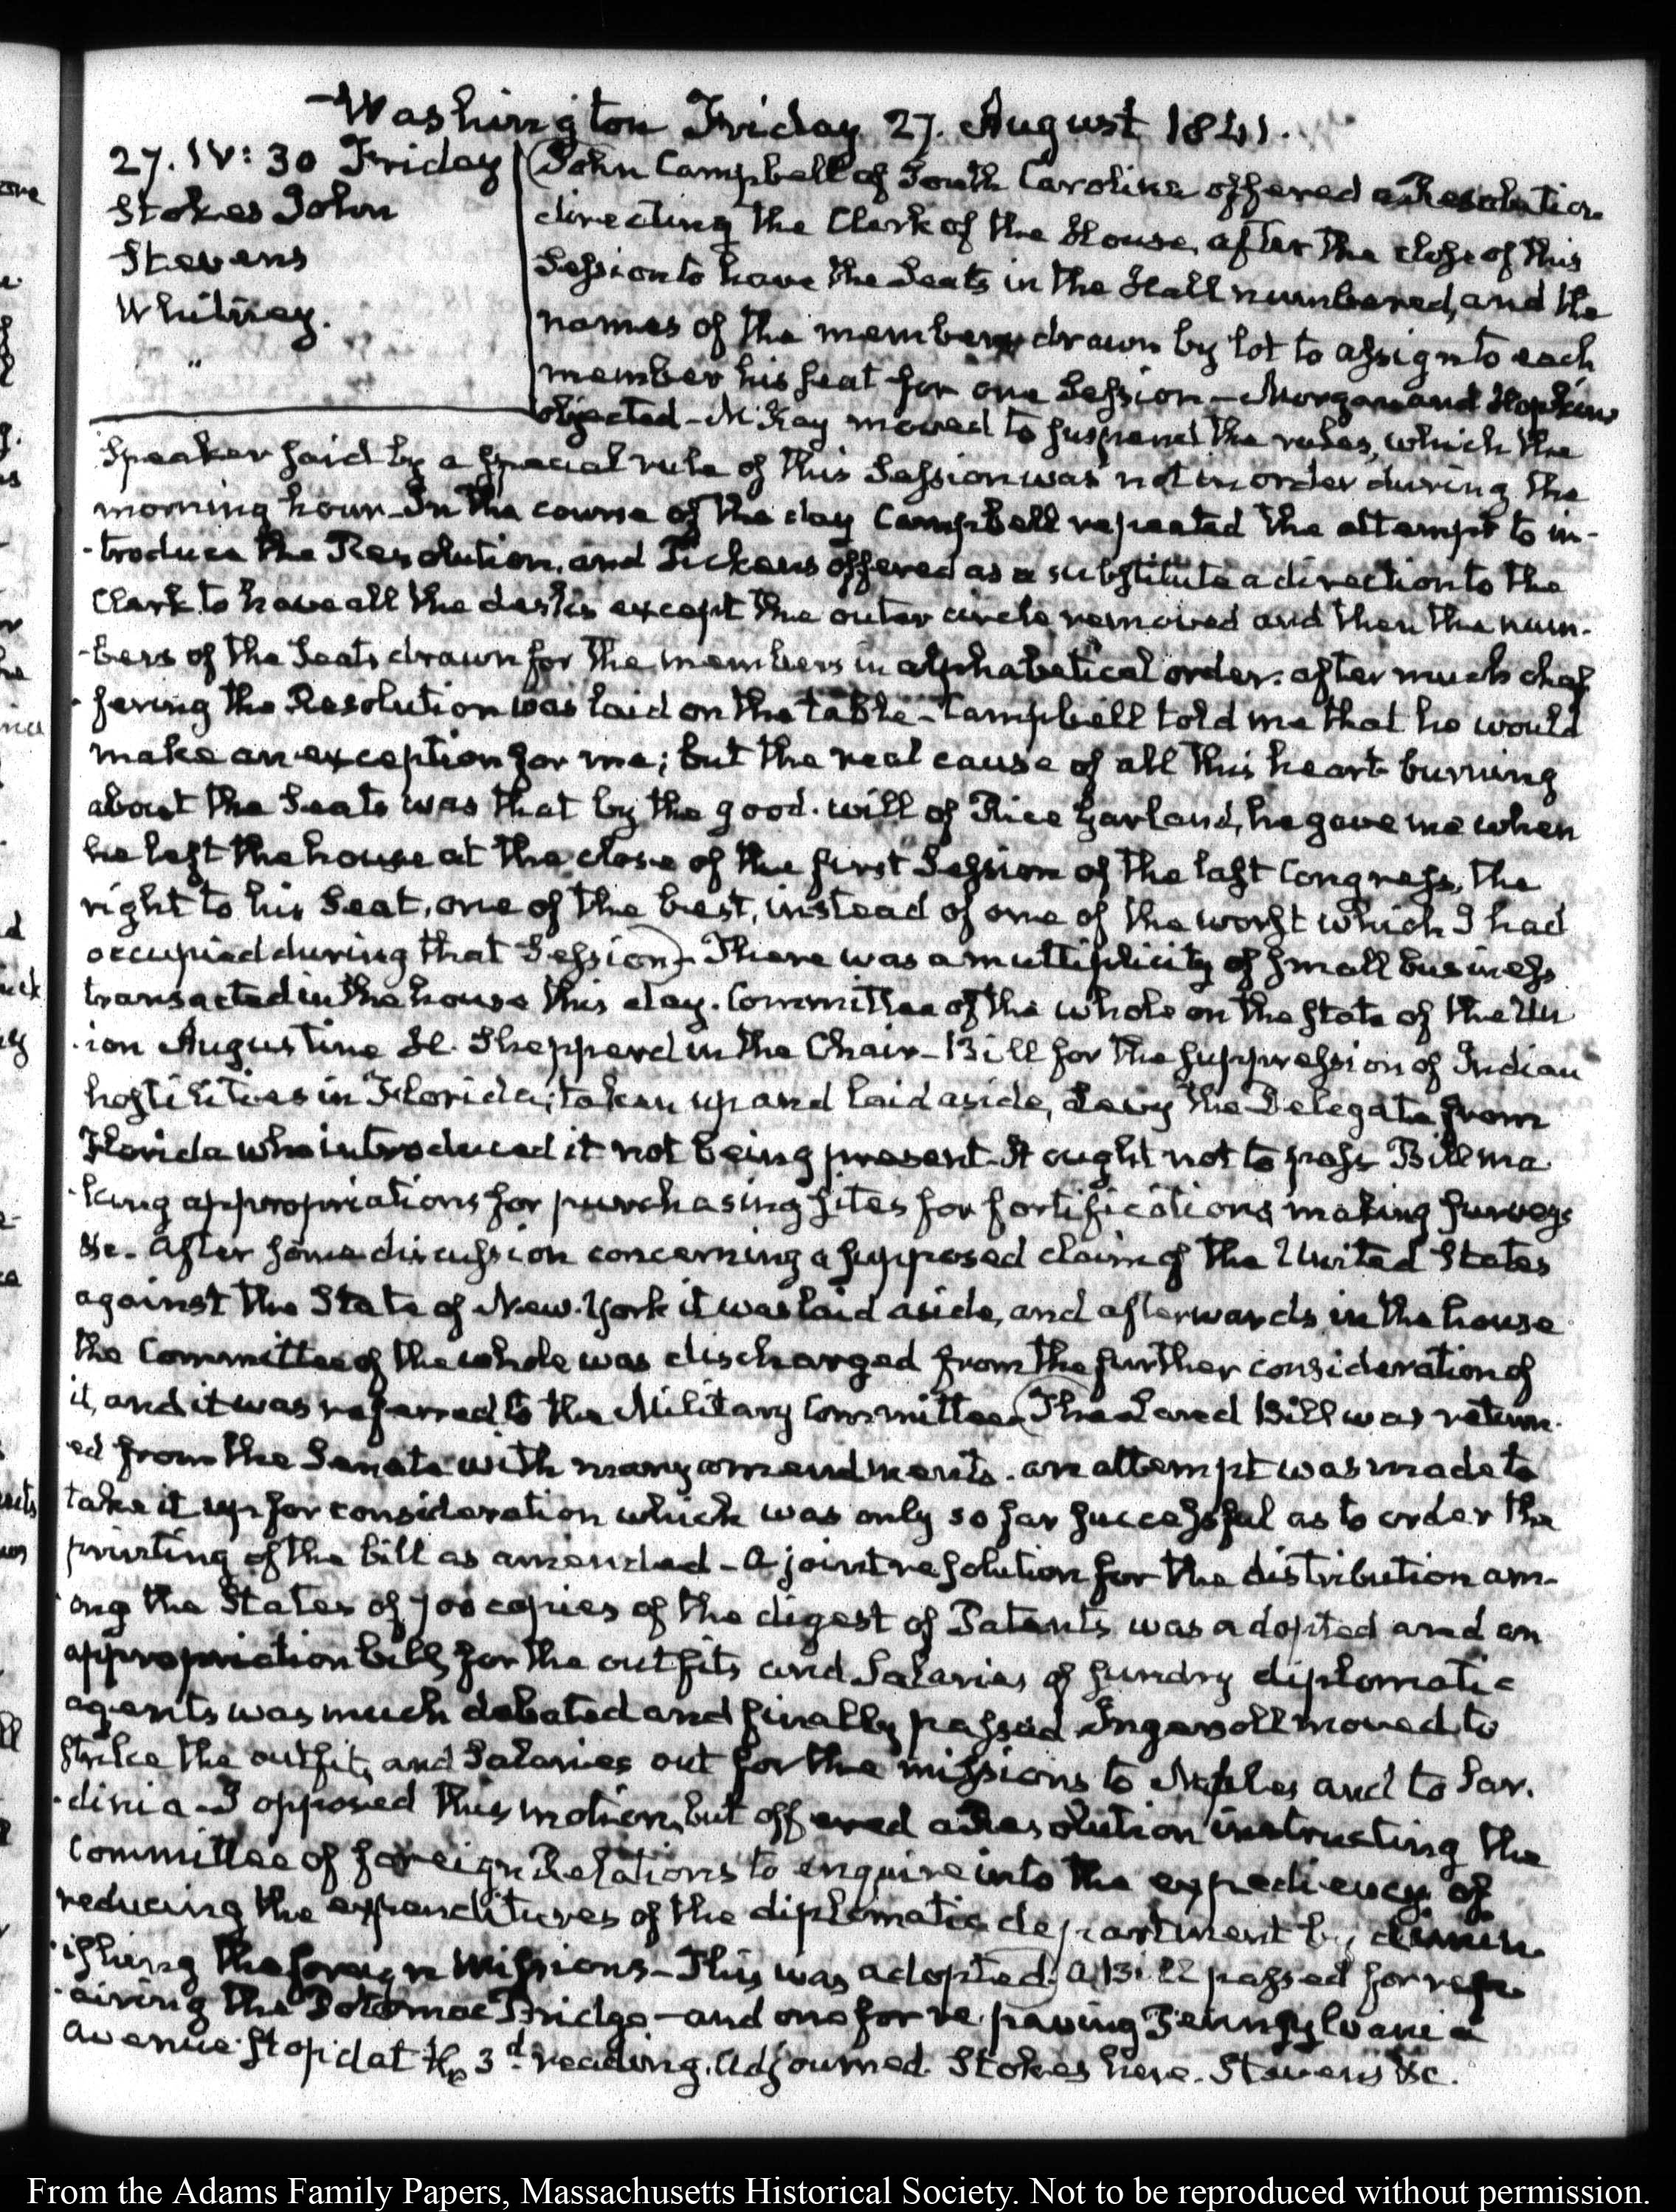 Washington Friday 27. August 1841.
27. IV: 30 Friday
Stokes John
Stevens
Whitney.
"
(John Campbell of South Carolina offered a Resolution
directing the Clerk of the House, after the close of this
Session to have the Seats in the Hall numbered, and the
names of the members drawn by lot to assign to each
member his seat for one Session — Morgan and Hopkins
objected — McKay moved to suspend the rules, which the
Speaker said by a special rule of this Session was not in order during the
morning hour. In the course of the day Campbell repeated the attempt to in-
-troduce the Resolution, and Pickens offered as a substitute a direction to the
Clerk to have all the desks except the outer circle removed and then the num-
-bers of the Seats drawn for the members in alphabetical order. after much chaf
-fering the Resolution was laid on the table — Campbell told me that he would
make an exception for me; but the real cause of all this heart-burning
about the Seats was that by the good-will of Rice Garland, he gave me when
he left the house at the close of the first Session of the last Congress, the
right to his Seat, one of the best, instead of one of the worst which I had
occupied during that Session) — There was a multiplicity of small business
transacted in the house this day. Committee of the whole on the state of the Un
-ion Augustine H. Shepperd in the Chair — Bill for the suppression of Indian
hostilities in Florida; taken up and laid aside, Levy the Delegate from
Florida who introduced it not being present. It ought not to pass. Bill ma
-king appropriations for purchasing sites for fortifications making surveys
&c. After some discussion concerning a supposed claim of the United States
against the State of New-York it was laid aside, and afterwards in the house
the Committee of the whole was discharged from the further consideration of
it, and it was referred to the Military Committee (The Land Bill was return-
ed from the Senate with many amendments. an attempt was made to
take it up for consideration which was only so far successful as to order the
printing of the bill as amended — A joint resolution for the distribution am-
ong the States of 700 copies of the digest of Patents was adopted and an
appropriation bill for the outfits and Salaries of sundry diplomatic
agents was much debated and finally passed. Ingersoll moved to
strike the outfits and Salaries out for the missions to Naples and to Sar-
-dinia. I opposed this motion, but offered a Resolution instructing the
Committee of foreign Relations to enquire into the expediency of
reducing the expenditures of the diplomatic department by dimin-
-ishing the foreign missions — This was adopted) A Bill passed for rep
-airing the Potomac Bridge — and one for re-paving Pennsylvania
avenue stop'd at the 3d. reading. Adjourned. Stokes here. Stevens &c.
From the Adams Family Papers, Massachusetts Historical Society. Not to be reproduced without permission.